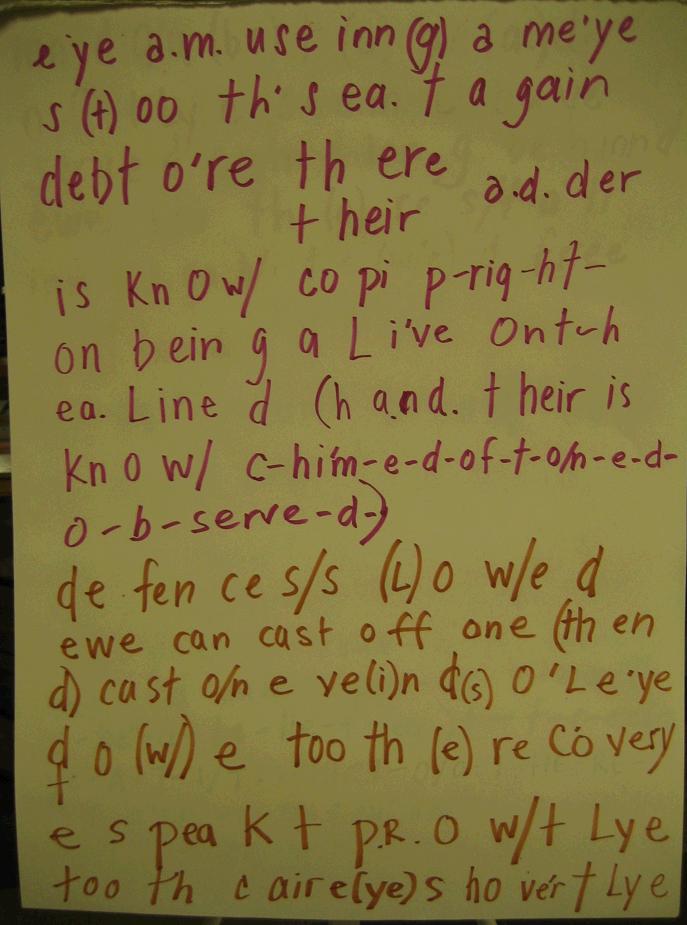 e'ye a.m. use inn (g) a me'ye
s (t) oo th's ea. t a gain
debt o're th ere a.d. der
t heir
is Kn Ow/ co pi p-rig-ht-
on bein g a Li've Ont-h
ea. Line d (h a.nd. t heir is
Kn O w/ c-him-e-d-of-t-o/n-e-d-
o-b-serve-d-)
de fen ce s/s (L) o w/e d
ewe can cast off one (th en
d) cast o/n e ve(i)n d(s) O'Le'ye
d o (w/) e too th (e) re Co very
t
e s pea k t P.R. O w/t Lye
too th c aire(ye)s ho ver t Lye